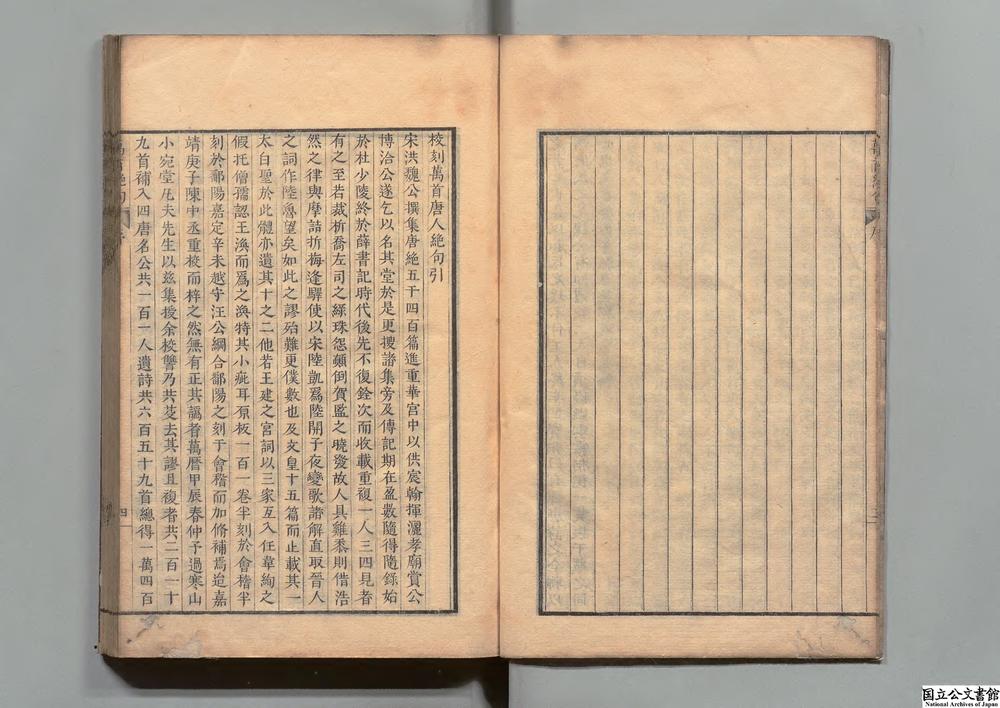 校刻萬首唐人絶句引
宋洪魏公撰集唐絶五千四百篇進重華宫中以供宸翰揮灑孝廟賞公
博洽公遂乞以名其堂於是更搜諸集旁及傳記期在盈數隨得隨錄始
於杜少陵終於薛書記時代後先不復銓次而收載重複一人三四見者
有之至若裁折喬左司之緑珠怨顛倒賀監之曉發故人具雞黍則借浩
然之律與摩詰折梅逢驛使以宋陸凱爲陸開子夜變歌諸解直取晉人
之詞作陸魯望矣如此之謬殆難更僕數也及文皇十五篇而止載其一
太白聖於此體亦遺其十之二他若王建之宫詞以三家互入任韋絢之
假托僧孺認王渙而爲之渙特其小疵耳原板一百一卷半刻於會稽半
刻於鄱陽嘉定辛未越守汪公綱合鄱陽之刻于會稽而加脩補焉迨嘉
靖庚子陳中丞重校而梓之然無有正其譌者萬曆甲辰春仲予過寒山
小宛堂凡夫先生以兹集授余校讐乃共芟去其謬且複者共二百一十
九首補入四唐名公共一百一人遺詩共六百五十九首總得一萬四百
四
国立公文書館
National Archives of Japan